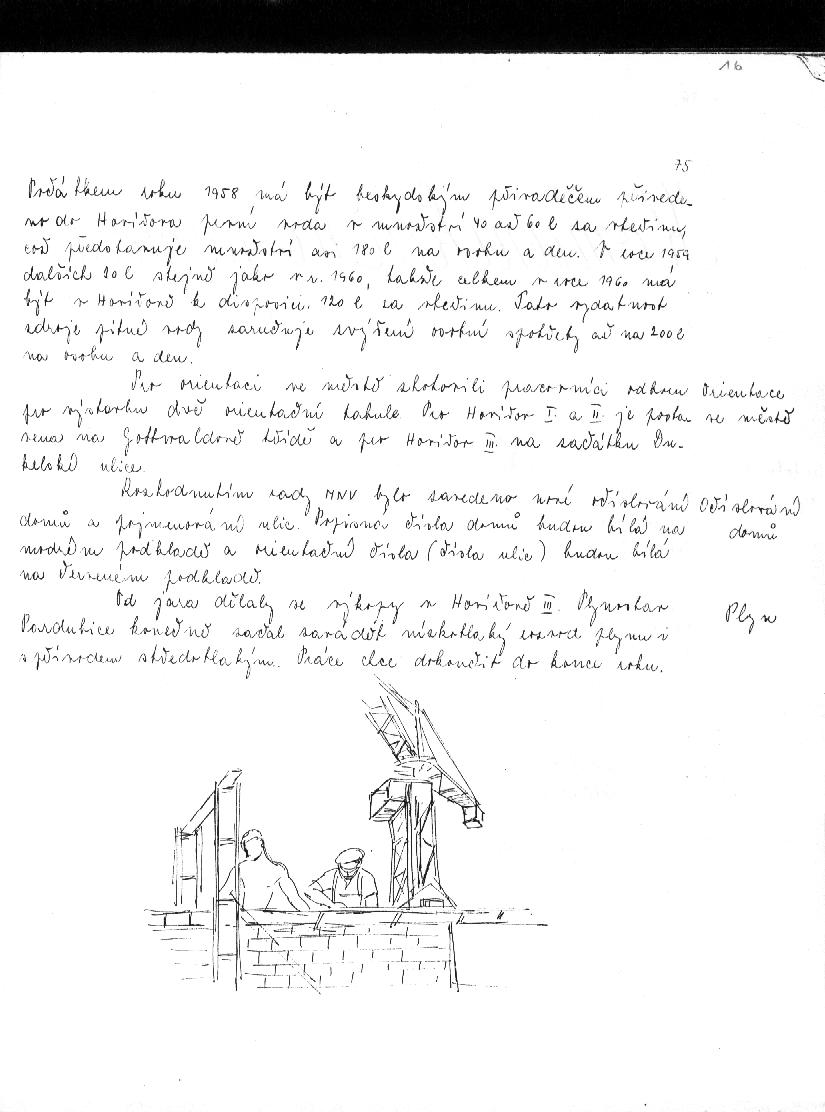 16
75
Počátkem roku 1958 má být beskydským přivaděčem přivede-
no do Havířova první voda v množství 40 až 60 l za vteřinu,
což představuje množství asi 180 l na osobu a den. V roce 1959
dalších 20 l stejně jako v r. 1960, takže celkem v roce 1960 má
být v Havířově k disposici 120 l za vteřinu. Tato vydatnost
zdroje pitné vody zaručuje zvýšení osobní spotřeby až na 200 l
na osobu a den.
Pro orientaci ve městě zhotovili pracovníci odboru Orientace
pro výstavbu dvě orientační tabule. Pro Havířov I. a II. je posta- ve městě
vena na Gottwaldově třídě a pro Havířov III. na začátku Du-
kelské ulice.
Rozhodnutím rady MNV bylo zavedeno nové očíslování Očíslování
domů a pojmenování ulic. Popisná čísla domů budou bílá na domů
modrém podkladě a orientační čísla (čísla ulic) budou bílá
na červeném podkladě.
Od jara dělaly se výkopy v Havířově III. Plynostav Plyn
Pardubice konečně začal zavádět nízkotlaký rozvod plynu i
s přívodem středotlakým. Práce chce dokončit do konce roku.